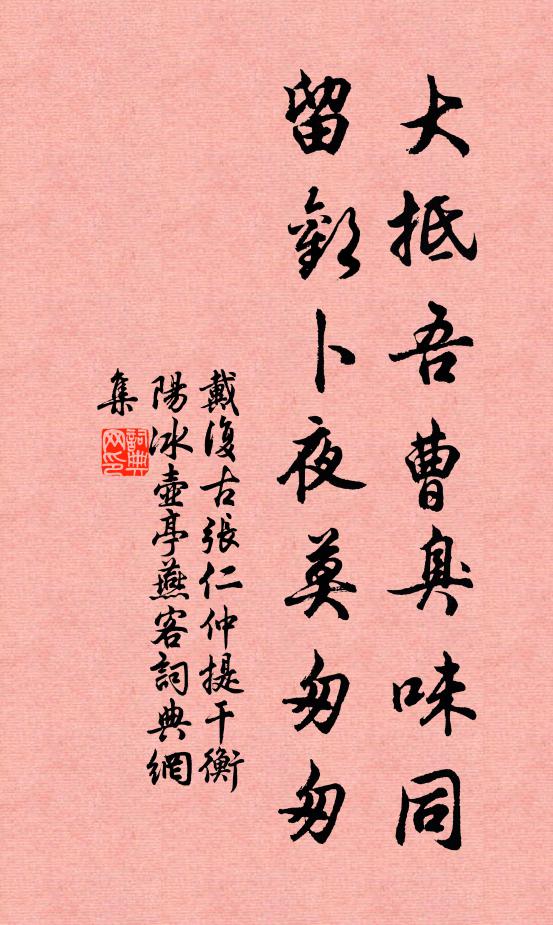 大抵吾曹臭味同
留歡卜夜莫匆匆
戴復古張仁仲提干衡
陽冰壺亭燕客詞典網
集
詞典網印